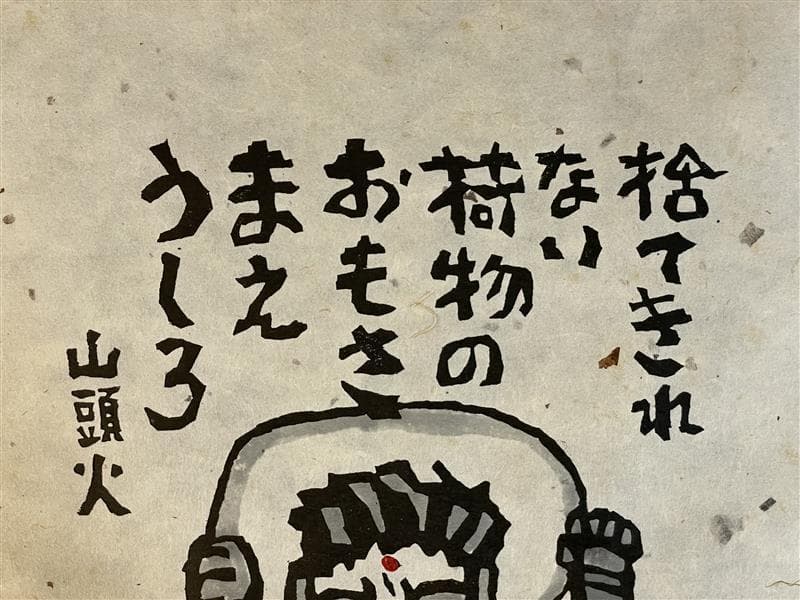 捨てきれ
ない
荷物の
おもさ
まえ
うしろ
山頭火